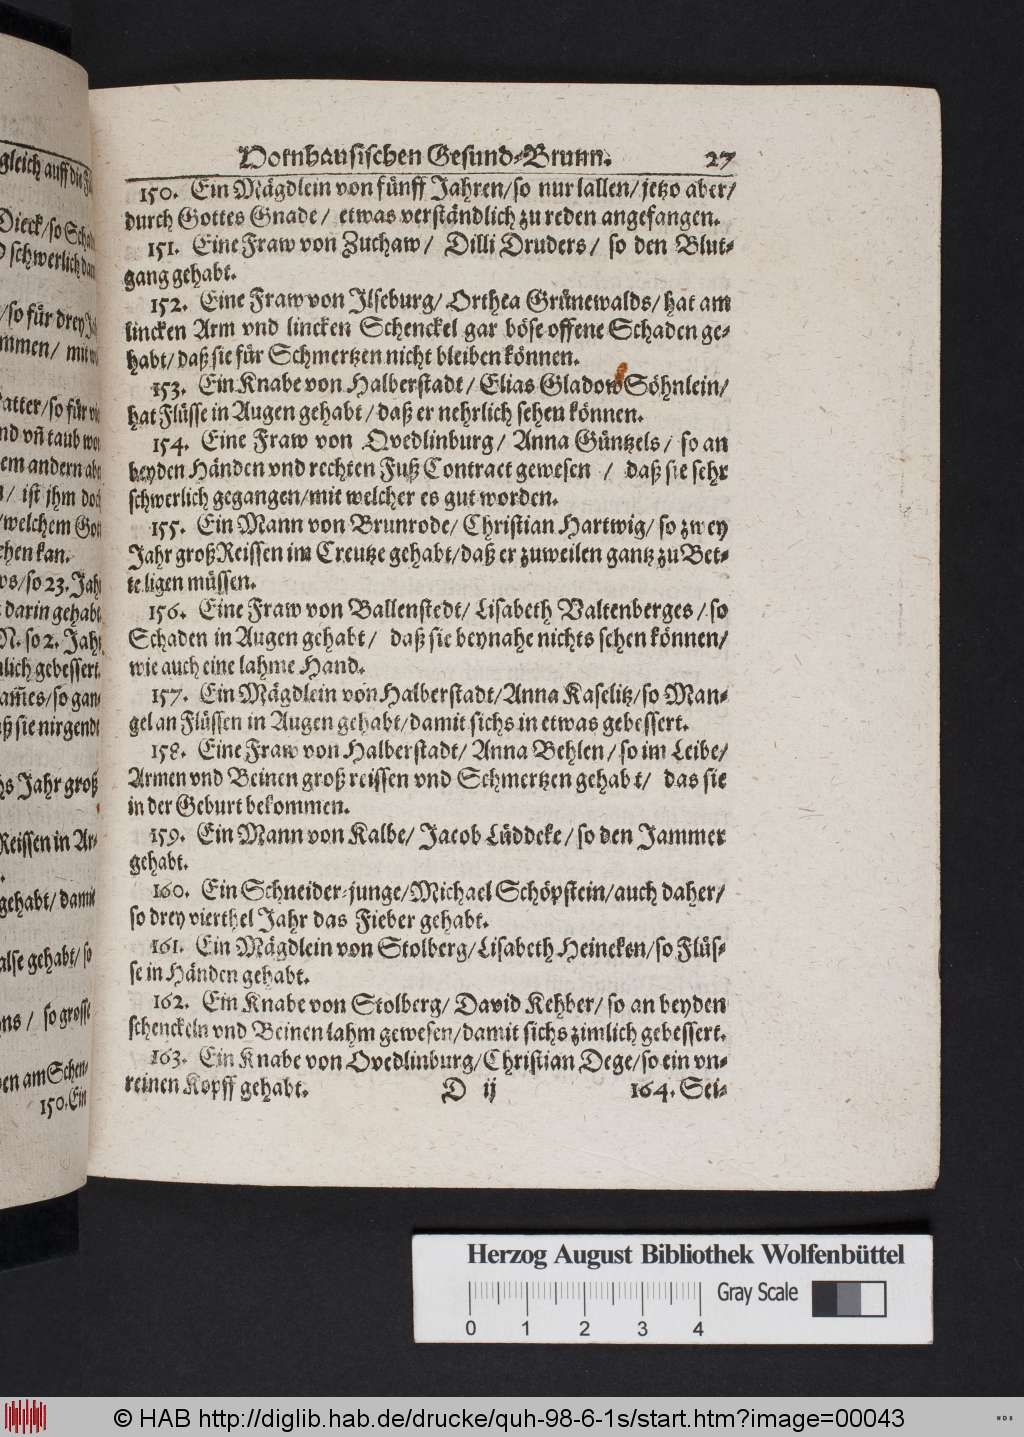 gleich auff die
Dieck/ so
schwerlich
/ so für drey
mmen/ mit
atter/ so für
nd vñ taub
em andern
/ ist jhm
/ welchem
ehen kan.
so 23. Jahr
darin gehabt
N. so 2. Jahr
lich gebessert.
/ so
sie nirgendt
Jahr groß
Reissen in Ar-
gehabt/ damit
alse gehabt/ so
/ so grosse
am Schen-
150. Ein
Hornhausischen Gesund-Brunn. 27
150. Ein Mägdlein von fünff Jahren/ so nur lallen/ jetzo aber/
durch Gottes Gnade/ etwas verständlich zu reden angefangen.
151. Eine Fraw von Zuchaw/ Dilli Druders/ so den Blut-
gang gehabt.
152. Eine Fraw von Ilseburg/ Orthea Grünewalds/ hat am
lincken Arm vnd lincken Schenckel gar böse offene Schaden ge-
habt/ daß sie für Schmertzen nicht bleiben können.
153. Ein Knabe von Halberstadt/ Elias Gladow Söhnlein/
hat Flüsse in Augen gehabt/ daß er nehrlich sehen können.
154. Eine Fraw von Qvedlinburg/ Anna Güntzels/ so an
beyden Händen vnd rechten Fuß Contract gewesen/ daß sie sehr
schwerlich gegangen/ mit welcher es gut worden.
155. Ein Mann von Brunrode/ Christian Hartwig/ so zwey
Jahr groß Reissen im Creutze gehabt/ daß er zuweilen gantz zu Bet-
te ligen müssen.
156. Eine Fraw von Ballenstedt/ Lisabeth Valtenberges/ so
Schaden in Augen gehabt/ daß sie beynahe nichts sehen können/
wie auch eine lahme Hand.
157. Ein Mägdlein von Halberstadt/ Anna Kaselitz/ so Man-
gel an Flüssen in Augen gehabt/ damit sichs in etwas gebessert.
158. Eine Fraw von Halberstadt/ Anna Behlen/ so im Leibe/
Armen vnd Beinen groß reissen vnd Schmertzen gehabt/ das sie
in der Geburt bekommen.
159. Ein Mann von Kalbe/ Jacob Lüddeke/ so den Jammer
gehabt.
160. Ein Schneider-junge/ Michael Schöpstein/ auch daher/
so drey vierthel Jahr das Fieber gehabt.
161. Ein Mägdlein von Stolberg/ Lisabeth Heineken/ so Flüs-
se in Händen gehabt.
162. Ein Knabe von Stolberg/ David Kehber/ so an beyden
schenckeln vnd Beinen lahm gewesen/ damit sichs zimlich gebessert.
163. Ein Knabe von Qvedlinburg/ Christian Dege/ so ein vn-
reinen Kopff gehabt. D ij 164. Sei-
Herzog August Bibliothek Wolfenbüttel
Gray Scale
0 1 2 3 4
© HAB http://diglib.hab.de/drucke/quh-98-6-1s/start.htm?image=00043